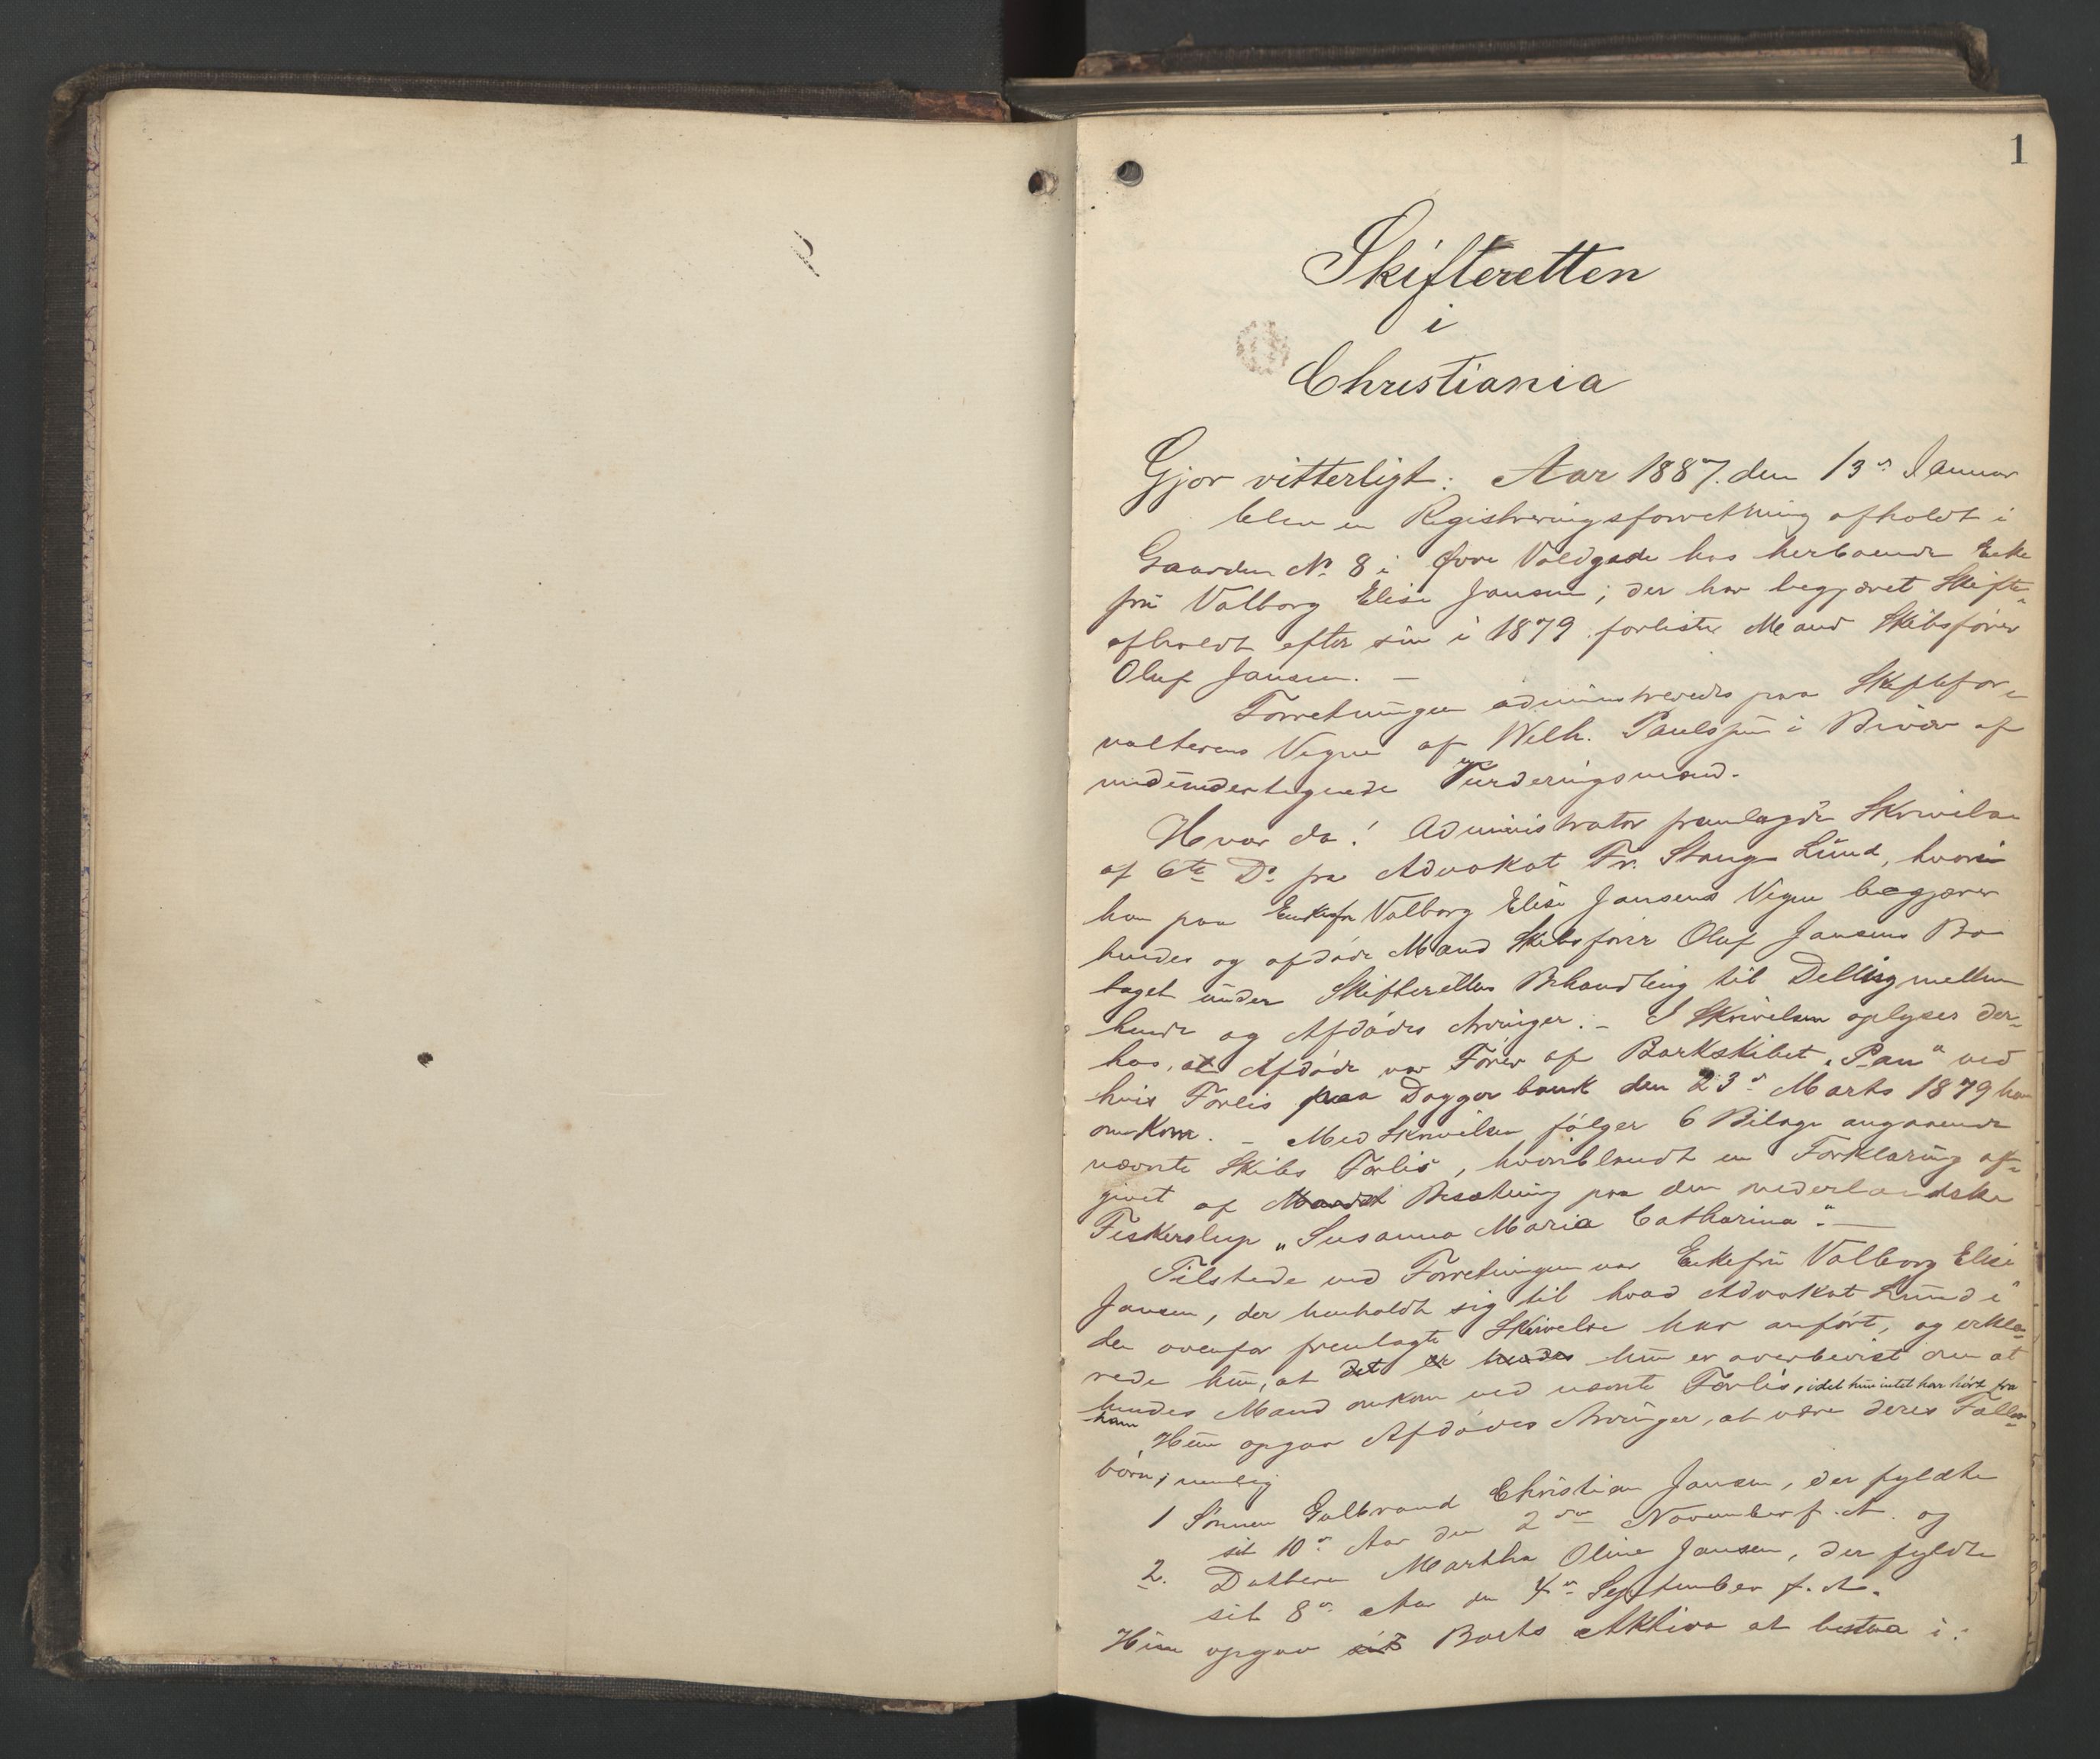 1
Skifteretten
i
Christiania
Gjør vitterligt: Aar 1887. den 13de Januar
blev en Registreringsforretning afholdt i
Gaarden No 8 i Øvre Voldgade hos herboende Enke
fru Valborg Elise Jansen; der har begjæret Skifte
afholdt efter sin i 1879 forliste Mand Skibsfører
Oluf Jansen. —
Forretningen administreredes paa Skiftefor-
valterens Vegne af Wilh. Paulsen i Nærvær af
undertegnede Vurderingsmænd.
Hvor da! Administrator fremlagde Skrivelse
af 6te Ds fra Advokat Fr. Stang Lund, hvori
han paa Enkefru Valborg Elise Jansens Vegne begjærer
hendes og afdøde Mand Skibsfører Oluf Jansens Bo
taget under Skifterettens Behandling til Deling mellem
hende og Afdødes Arvinger. – I Skrivelsen oplyses der-
hos, at Afdøde var Fører af Barkskibet „Pan“ ved
hvis Forlis paa Doggerbank den 23de Marts 1879 han
omkom. – Med Skrivelsen følger 6 Bilage angaaende
nævnte Skibs Forlis, hvoriblandt en Forklaring af-
givet af Mandsk Besætning paa den nederlandske
Fiskerslup „Susanna Maria Catharina“. —
Tilstede ved Forretningen var Enkefru Valborg Elise
Jansen, der henholdt sig til hvad Advokat Lund i
den ovenfor fremlagte Skrivelse har anført, og erklæ-
rede hun, at det er hendes hun er overbevist om at
hendes Mand omkom ved nævnte Forlis, idet hun intet har hørt fra
ham
Hun opgav Afdødes Arvinger, at være deres Fælles-
børn, nemlig
1 Sønnen Gulbrand Christian Jansen, der fyldte
sit 10de Aar den 2den November f. A. og
2. Datteren Martha Oline Jansen, der fyldte
sit 8de Aar den 4de September f. A.
Hun opgav sit Boets Aktiva at bestaa i: